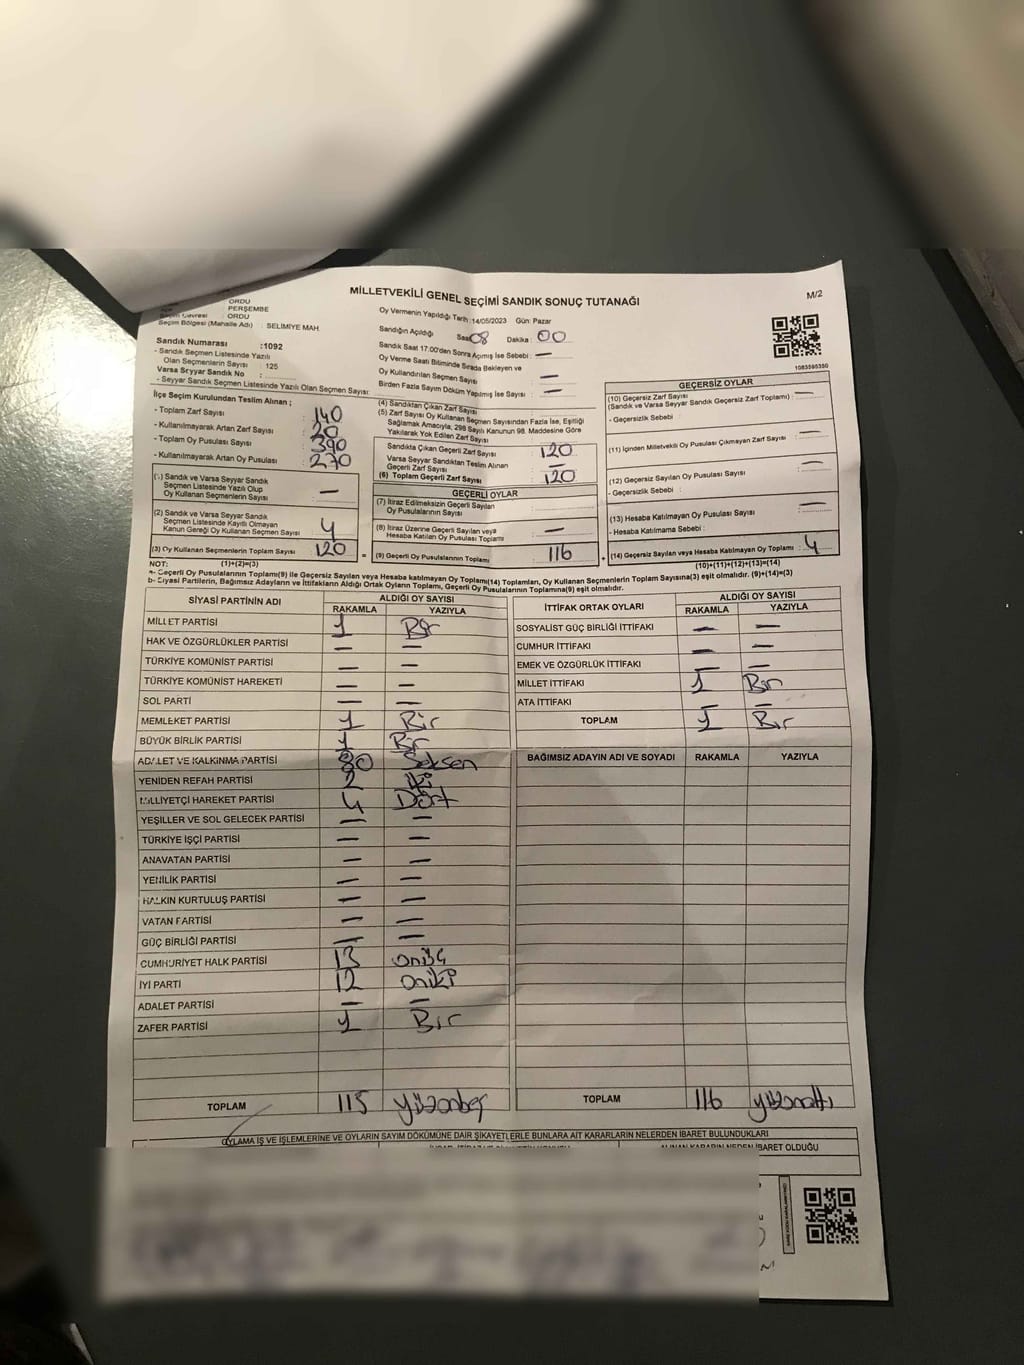 MİLLETVEKİLİ GENEL SEÇİMİ SANDIK SONUÇ TUTANAĞI
M/2
ORDU
PERŞEMBE
Seçim Çevresi : ORDU
Seçim Bölgesi (Mahalle Adı) : SELİMİYE MAH.
Sandık Numarası :1092
- Sandık Seçmen Listesinde Yazılı
Olan Seçmenlerin Sayısı : 125
Varsa Seyyar Sandık No :
- Seyyar Sandık Seçmen Listesinde Yazılı Olan Seçmen Sayısı:
Oy Vermenin Yapıldığı Tarih :14/05/2023 Gün: Pazar
Sandığın Açıldığı Saat 08 Dakika : 00
Sandık Saat 17:00'den Sonra Açılmış İse Sebebi : —
Oy Verme Saati Bitiminde Sırada Bekleyen ve
Oy Kullandırılan Seçmen Sayısı —
Birden Fazla Sayım Döküm Yapılmış İse Sayısı : —
1083595350
İlçe Seçim Kurulundan Teslim Alınan ;
- Toplam Zarf Sayısı 140
- Kullanılmayarak Artan Zarf Sayısı 20
- Toplam Oy Pusulası Sayısı 390
- Kullanılmayarak Artan Oy Pusulası 270
(1) Sandık ve Varsa Seyyar Sandık
Seçmen Listesinde Yazılı Olup
Oy Kullanan Seçmenlerin Sayısı : —
(2) Sandık ve Varsa Seyyar Sandık
Seçmen Listesinde Kayıtlı Olmayan
Kanun Gereği Oy Kullanan Seçmen Sayısı : 4
(3) Oy Kullanan Seçmenlerin Toplam Sayısı : 120
(1)+(2)=(3)
(4) Sandıktan Çıkan Zarf Sayısı
(5) Zarf Sayısı Oy Kullanan Seçmen Sayısından Fazla İse, Eşitliği
Sağlamak Amacıyla, 298 Sayılı Kanunun 98. Maddesine Göre
Yakılarak Yok Edilen Zarf Sayısı
Sandıkta Çıkan Geçerli Zarf Sayısı 120
Varsa Seyyar Sandıktan Teslim Alınan
Geçerli Zarf Sayısı —
(6) Toplam Geçerli Zarf Sayısı : 120
GEÇERLİ OYLAR
(7) İtiraz Edilmeksizin Geçerli Sayılan
Oy Pusulalarının Sayısı
(8) İtiraz Üzerine Geçerli Sayılan veya
Hesaba Katılan Oy Pusulası Toplamı —
= (9) Geçerli Oy Pusulalarının Toplamı : 116
GEÇERSİZ OYLAR
(10) Geçersiz Zarf Sayısı : —
(Sandık ve Varsa Seyyar Sandık Geçersiz Zarf Toplamı)
- Geçersizlik Sebebi :
(11) İçinden Milletvekili Oy Pusulası Çıkmayan Zarf Sayısı : —
(12) Geçersiz Sayılan Oy Pusulası Sayısı : —
- Geçersizlik Sebebi :
(13) Hesaba Katılmayan Oy Pusulası Sayısı : —
- Hesaba Katılmama Sebebi :
+ (14) Geçersiz Sayılan veya Hesaba Katılmayan Oy Toplamı : 4
(10)+(11)+(12)+(13)=(14)
NOT:
a- Geçerli Oy Pusulalarının Toplamı(9) ile Geçersiz Sayılan veya Hesaba katılmayan Oy Toplamı(14) Toplamları, Oy Kullanan Seçmenlerin Toplam Sayısına(3) eşit olmalıdır. (9)+(14)=(3)
b- Siyasi Partilerin, Bağımsız Adayların ve İttifakların Aldığı Ortak Oyların Toplamı, Geçerli Oy Pusulalarının Toplamına(9) eşit olmalıdır.
SİYASİ PARTİNİN ADI ALDIĞI OY SAYISI
RAKAMLA YAZIYLA
MİLLET PARTİSİ 1 Bir
HAK VE ÖZGÜRLÜKLER PARTİSİ — —
TÜRKİYE KOMÜNİST PARTİSİ — —
TÜRKİYE KOMÜNİST HAREKETİ — —
SOL PARTİ — —
MEMLEKET PARTİSİ 1 Bir
BÜYÜK BİRLİK PARTİSİ 1 Bir
ADALET VE KALKINMA PARTİSİ 80 Seksen
YENİDEN REFAH PARTİSİ 2 iki
MİLLİYETÇİ HAREKET PARTİSİ 4 Dört
YEŞİLLER VE SOL GELECEK PARTİSİ — —
TÜRKİYE İŞÇİ PARTİSİ — —
ANAVATAN PARTİSİ — —
YENİLİK PARTİSİ — —
HALKIN KURTULUŞ PARTİSİ — —
VATAN PARTİSİ — —
GÜÇ BİRLİĞİ PARTİSİ — —
CUMHURİYET HALK PARTİSİ 13 onüç
İYİ PARTİ 12 oniki
ADALET PARTİSİ — —
ZAFER PARTİSİ 1 Bir
TOPLAM 115 yüzonbeş
İTTİFAK ORTAK OYLARI ALDIĞI OY SAYISI
RAKAMLA YAZIYLA
SOSYALİST GÜÇ BİRLİĞİ İTTİFAKI — —
CUMHUR İTTİFAKI — —
EMEK VE ÖZGÜRLÜK İTTİFAKI — —
MİLLET İTTİFAKI 1 Bir
ATA İTTİFAKI — —
TOPLAM 1 Bir
BAĞIMSIZ ADAYIN ADI VE SOYADI RAKAMLA YAZIYLA
TOPLAM 116 yüzonaltı
OYLAMA İŞ VE İŞLEMLERİNE VE OYLARIN SAYIM DÖKÜMÜNE DAİR ŞİKAYETLERLE BUNLARA AİT KARARLARIN NELERDEN İBARET BULUNDUKLARI
ALINAN KARARIN NEDEN İBARET OLDUĞU